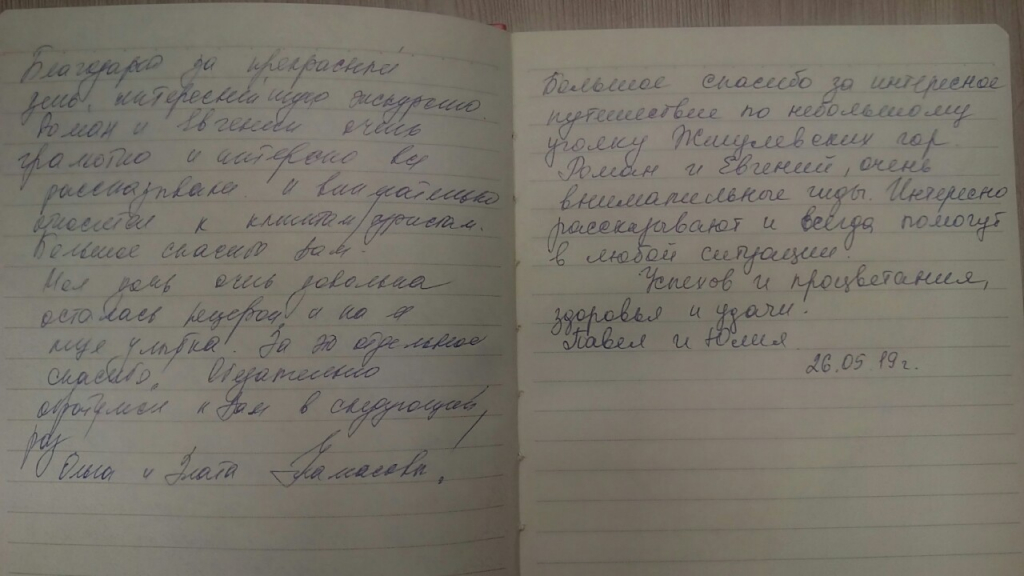 Благодарю за прекрасный
день, интереснейшую экскурсию.
Роман и Евгений очень
грамотно и интересно все
рассказывали и внимательно
относятся к клиентам/туристам.
Большое спасибо Вам.
Моя дочь очень довольна
осталась пещерой и на
лице улыбка. За это отдельное
спасибо. Обязательно
обратимся к Вам в следующий
раз
Ольга и Злата
Большое спасибо за интересное
путешествие по небольшому
уголку Жигулевских гор.
Роман и Евгений, очень
внимательные гиды. Интересно
рассказывают и всегда помогут
в любой ситуации.
Успехов и процветания,
здоровья и удачи.
Павел и Юлия
26.05.19г.